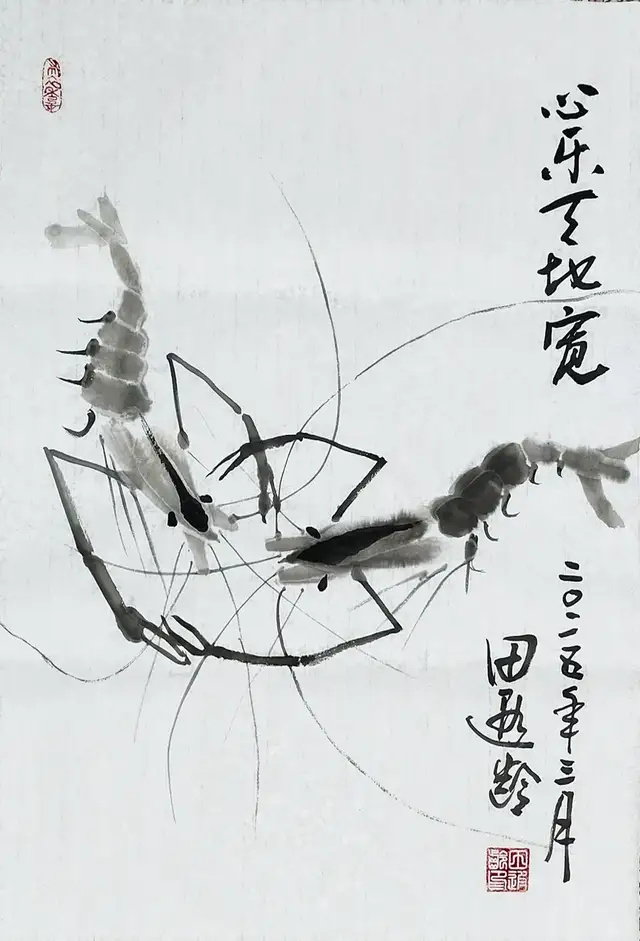 心乐天地宽
二〇二五年三月
田遐龄